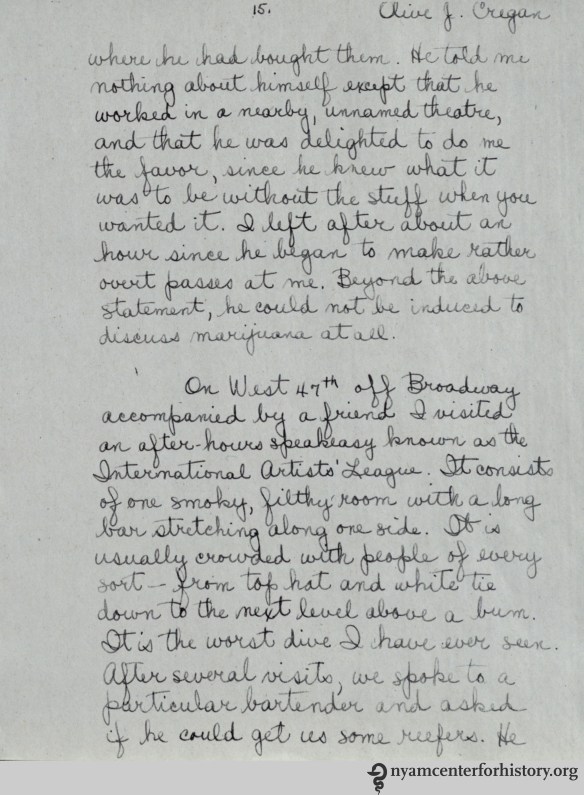 15. Olive J. Cregan
where he had bought them. He told me
nothing about himself except that he
worked in a nearby, unnamed theatre,
and that he was delighted to do me
the favor, since he knew what it
was to be without the stuff when you
wanted it. I left after about an
hour since he began to make rather
overt passes at me. Beyond the above
statement, he could not be induced to
discuss marijuana at all.
On West 47th off Broadway
accompanied by a friend I visited
an after-hours speakeasy known as the
International Artists' League. It consists
of one smoky, filthy room with a long
bar stretching along one side. It is
usually crowded with people of every
sort – from top hat and white tie
down to the next level above a bum.
It is the worst dive I have ever seen.
After several visits, we spoke to a
particular bartender and asked
if he could get us some reefers. He
nyamcenterforhistory.org